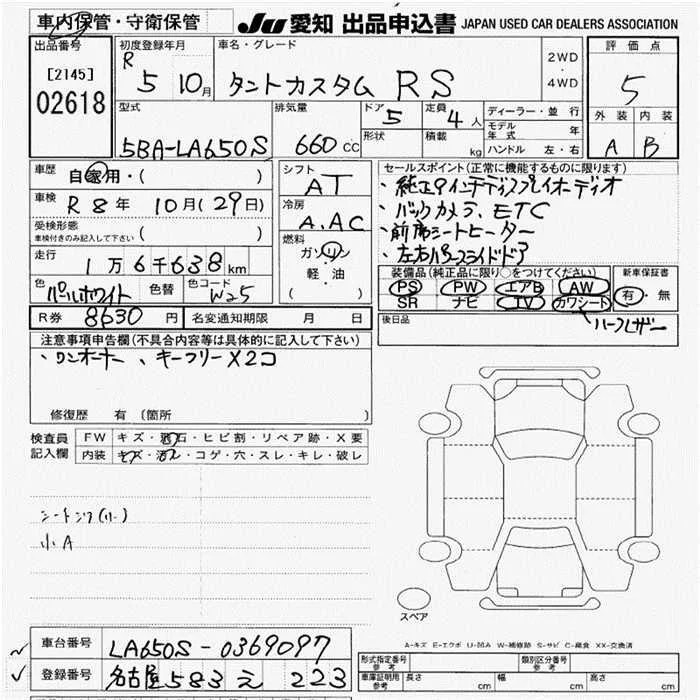 車内保管・守衛保管
JU 愛知 出品申込書 JAPAN USED CAR DEALERS ASSOCIATION
出品番号
[2145]
02618
初度登録年月
R 5 10月
車名・グレード
タントカスタム RS
2WD
・
4WD
評価点
5
外装 内装
A B
型式
5BA-LA650S
排気量
660 CC
ドア
5
定員
4人
形状
積載
kg
ディーラー・並行
モデル年式 年
ハンドル 左・右
車歴
自家用・( )
車検
R 8年 10月(29日)
受検形態
車検付きのみ記入して下さい ( )
走行
1万6千638km
色
パールホワイト
色替
色コード
W25
シフト
AT
冷房
A.AC
燃料
ガソリン
軽・油
( )
セールスポイント(正常に機能するものに限ります)
・純正9インチディスプレイオーディオ
・バックカメラ、ETC
・前席シートヒーター
・左右パワースライドドア
装備品(純正品に限り○をつけてください)
PS PW エアB AW
SR ナビ TV カワシート
新車保証書
有・無
ハーフレザー
R券 8630円
名変通知期限 月 日
後日品
注意事項申告欄(不具合内容等は具体的に記入して下さい)
・ワンオーナー、キーフリー×2コ
修復歴 有 (箇所 )
検査員
記入欄
FW キズ・飛石・ヒビ割・リペア跡・X要
内装 キズ・汚レ・コゲ・穴・スレ・キレ・破レ
小A
スペア
A-キズ E-エクボ U-凹み W-補修跡 S-サビ C-腐食 XX-交換済
車台番号
LA650S-0369097
登録番号
名古屋583え223
型式指定番号
参考
類別区分番号
参考
車庫証明用
参考
長さ cm
幅 cm
高さ cm